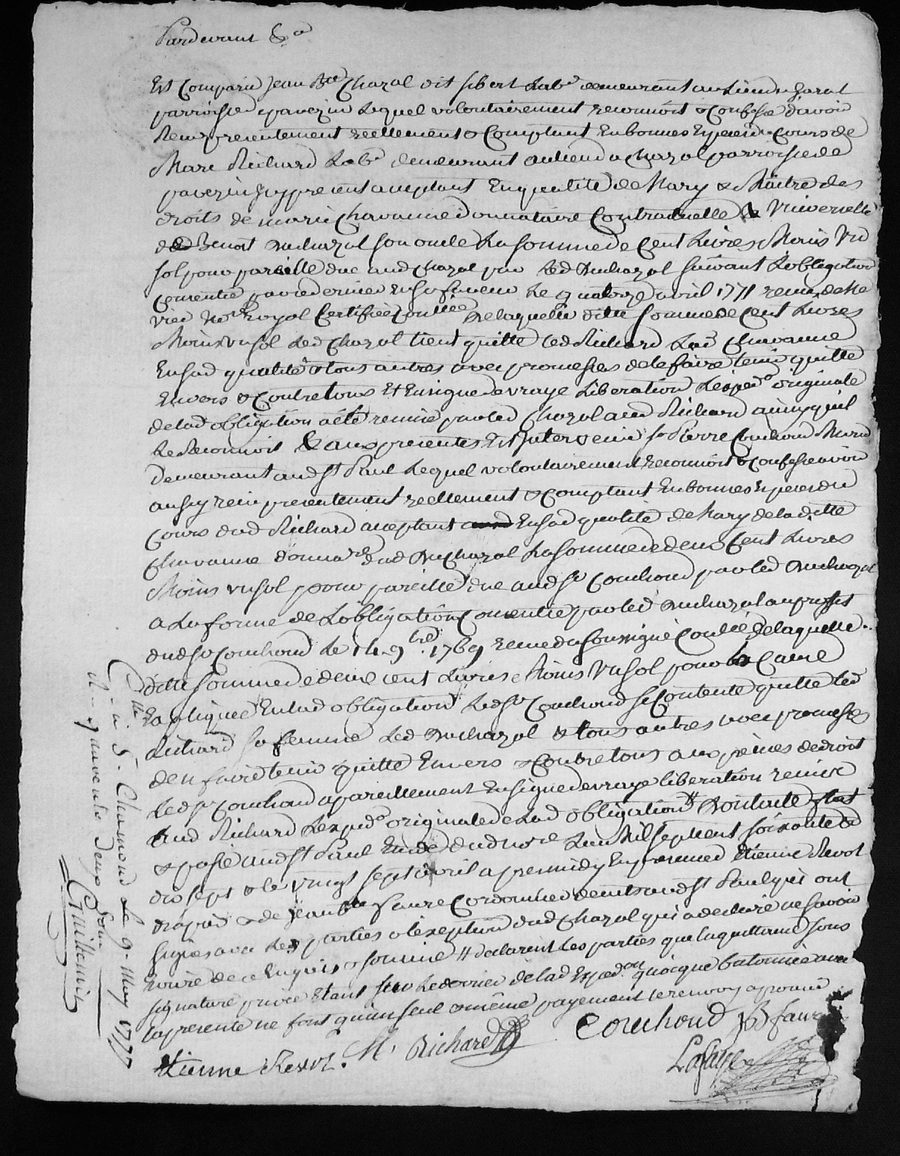 Pardevant &a
Est Comparu Jean Bte Chazal dit sibert Labr demeurant au Lieu de
parroisse de pavezin Lequel volontairement reconnoit & Confesse davoir
Reçu presentement reellement & Comptant En bonnes Especes du Cours de
Marc Richard Labr demeurant au lieu de Chazal parroisse de
pavezin present acceptant En qualité de Mary & Maitre des
droits de marie Chavanne donnataire Contractuelle & Universelle
de Benoit Duchazal son oncle La somme de Cent Livres Moins Un
sol pour pareille due aud Chazal par Led Duchazal suivant Lobligation
Consentie par ce dernier En sa faveur Le quatorze avril 1771 recue de Me
Nore Royal Certifiée Coulée De laquelle ditte Somme de Cent Livres
Moins un sol Led Chazal tient quitte led Richard Lad Chavanne
En sad qualité & tous autres avec promesses de le faire tenir quitte
Envers & Contre tous Et En signe de vraye Liberation Lexpedon originale
de lad obligation a été remise par led Chazal aud Richard ainsy quil
Le Reconnoit & aux presentes Est Intervenu sr Pierre Couchoud
demeurant aud St Paul Lequel volontairement reconnoit & confesse avoir
aussy reçu presentement reellement & comptant En bonnes Especes du
Cours dud Richard acceptant En sad qualité de Mary de laditte
Chavanne donnatre dud Duchazal La somme de deux Cent Livres
Moins un sol pour pareille due aud sr Couchoud par led Duchazal
a La forme de Lobligation Consentie par led Duchazal au proffit
dud sr Couchoud le 14 9bre 1769 recue du soussigné Coulée de laquelle
ditte somme de deux cent Livres Moins Un sol pour la Cause
Expliquée En lad obligation Led sr Couchoud se Contente quitte led
Richard sa femme Led Duchazal & tous autres avec promesses
den faire tenir quitte Envers & contre tous aux peines de droit
Led sr Couchoud a pareillement En signe de vraye liberation remise
aud Richard Lexpedon originale de lad obligation Dont acte fait
& passé aud St Paul Etude dud nore Lan Mil sept cent soixante &
dix sept & le vingt sept avril apres midy En presence d Etienne Revol
drapier & de Jean Bte faure Cordonnier demeurants aud St Paul qui ont
signés avec Les parties a lexception dud Chazal qui a declaré ne savoir
ecrire de ce Enquis & sommé declarent Les parties que la quittance sous
signature privée Etant sur Le dernier de lad Expedon quoique batonnée avec
la presente ne font quun seul & même payement le renvoy approuvé
Etienne Revol. M. Richard Couchoud JB faure
Lafaye
Clle a St Chamond Le 9 May 1777
Guillemin